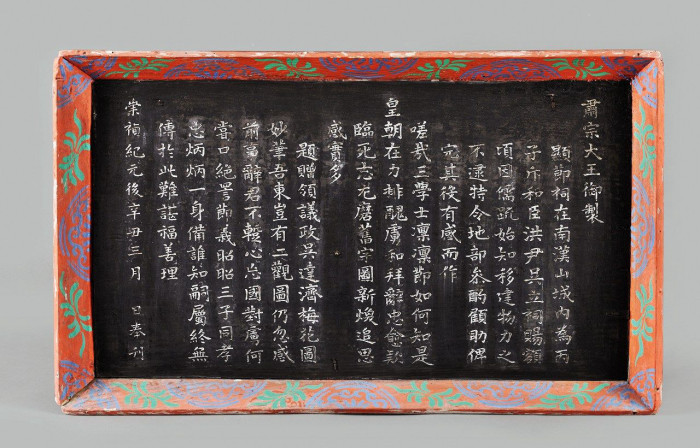 肅宗大王御製
顯節祠在南漢山城內為丙
子斥和臣洪尹吳立祠賜額
頃因儒疏始知移建物力之
不逮特令地部參酌顧助俾
完其役有感而作
嗟哉三學士凜凜節如何知是
皇朝在力排醜虜和拜辭忠愈
臨死志尤磨舊宇圖新煥追思
感實多
題贈領議政吳達濟梅花圖
妙筆吾東豈有二觀圖仍忽感
前事辭君不暫心忘國對虜何
嘗口絕詈節義昭昭三子同孝
忠炳炳一身備誰知嗣屬終無
傳於此難諶福善理
崇禎紀元後辛丑三月 日奉刊